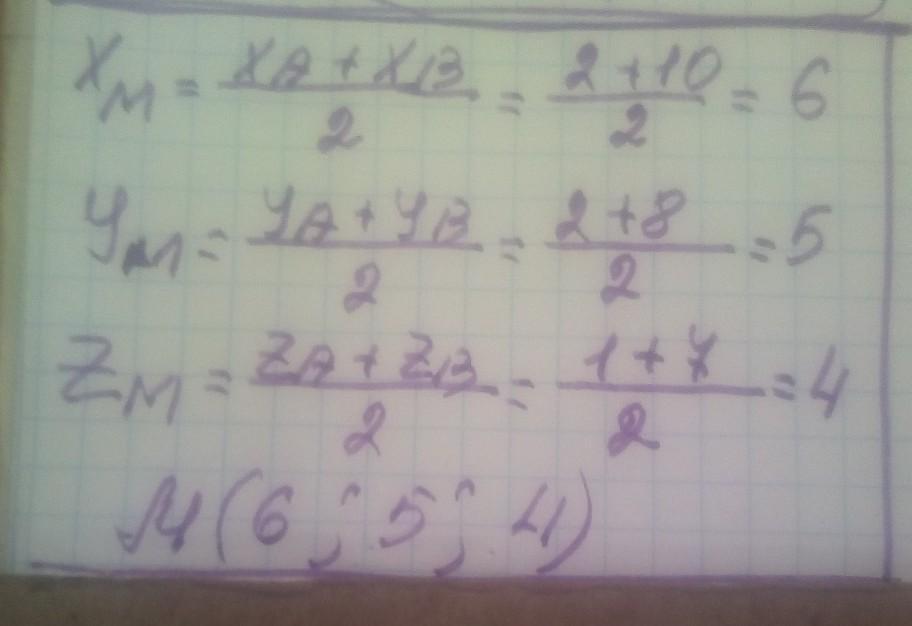 X_M = (X_A + X_B)/2 = (2 + 10)/2 = 6
y_M = (y_A + y_B)/2 = (2 + 8)/2 = 5
Z_M = (Z_A + Z_B)/2 = (1 + 7)/2 = 4
M(6; 5; 4)